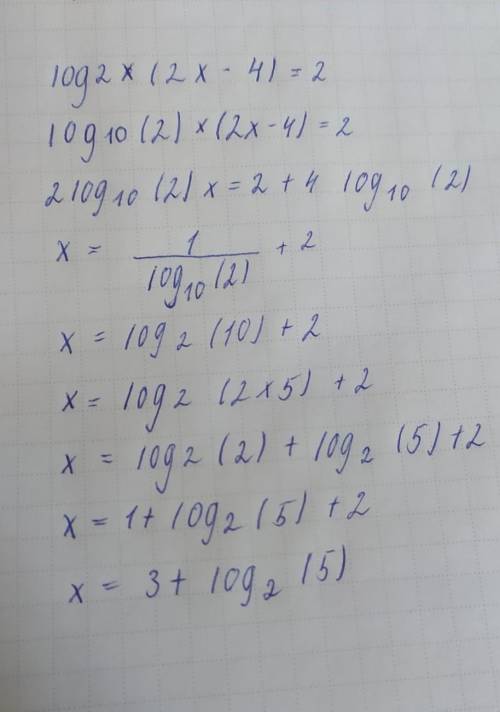 log2 × (2x - 4) = 2
log10 (2) × (2x-4) = 2
2log₁₀ (2) x = 2 + 4 log₁₀ (2)
x = 1/log₁₀(2) + 2
x = log₂ (10) + 2
x = log₂ (2×5) + 2
x = log₂ (2) + log₂ (5) + 2
x = 1 + log₂ (5) + 2
x = 3 + log₂ (5)